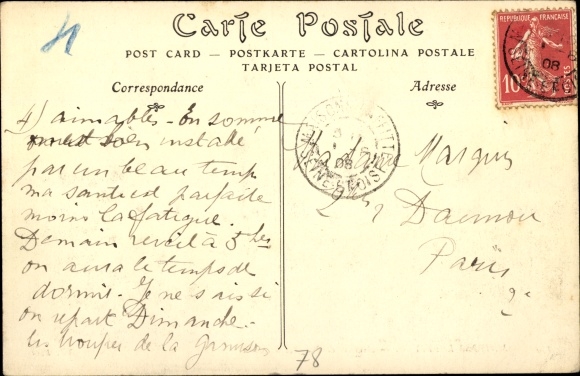 4
Carte Postale
POST CARD — POSTKARTE — CARTOLINA POSTALE
TARJETA POSTAL
Correspondance
Adresse
REPUBLIQUE FRANÇAISE
10
08
4) aimables - on somme
bien installé
par un beau temps
ma santé est parfaite
moins la fatigue.
Demain reveil à 5 hes
on aura le temps de
dormir. Je ne sais si
on repart Dimanche.
les troupes de la garnison
MAISONS
SEINE-ET-OISE
08
Madame Marquis
Rue Daumou
Paris
2e
78